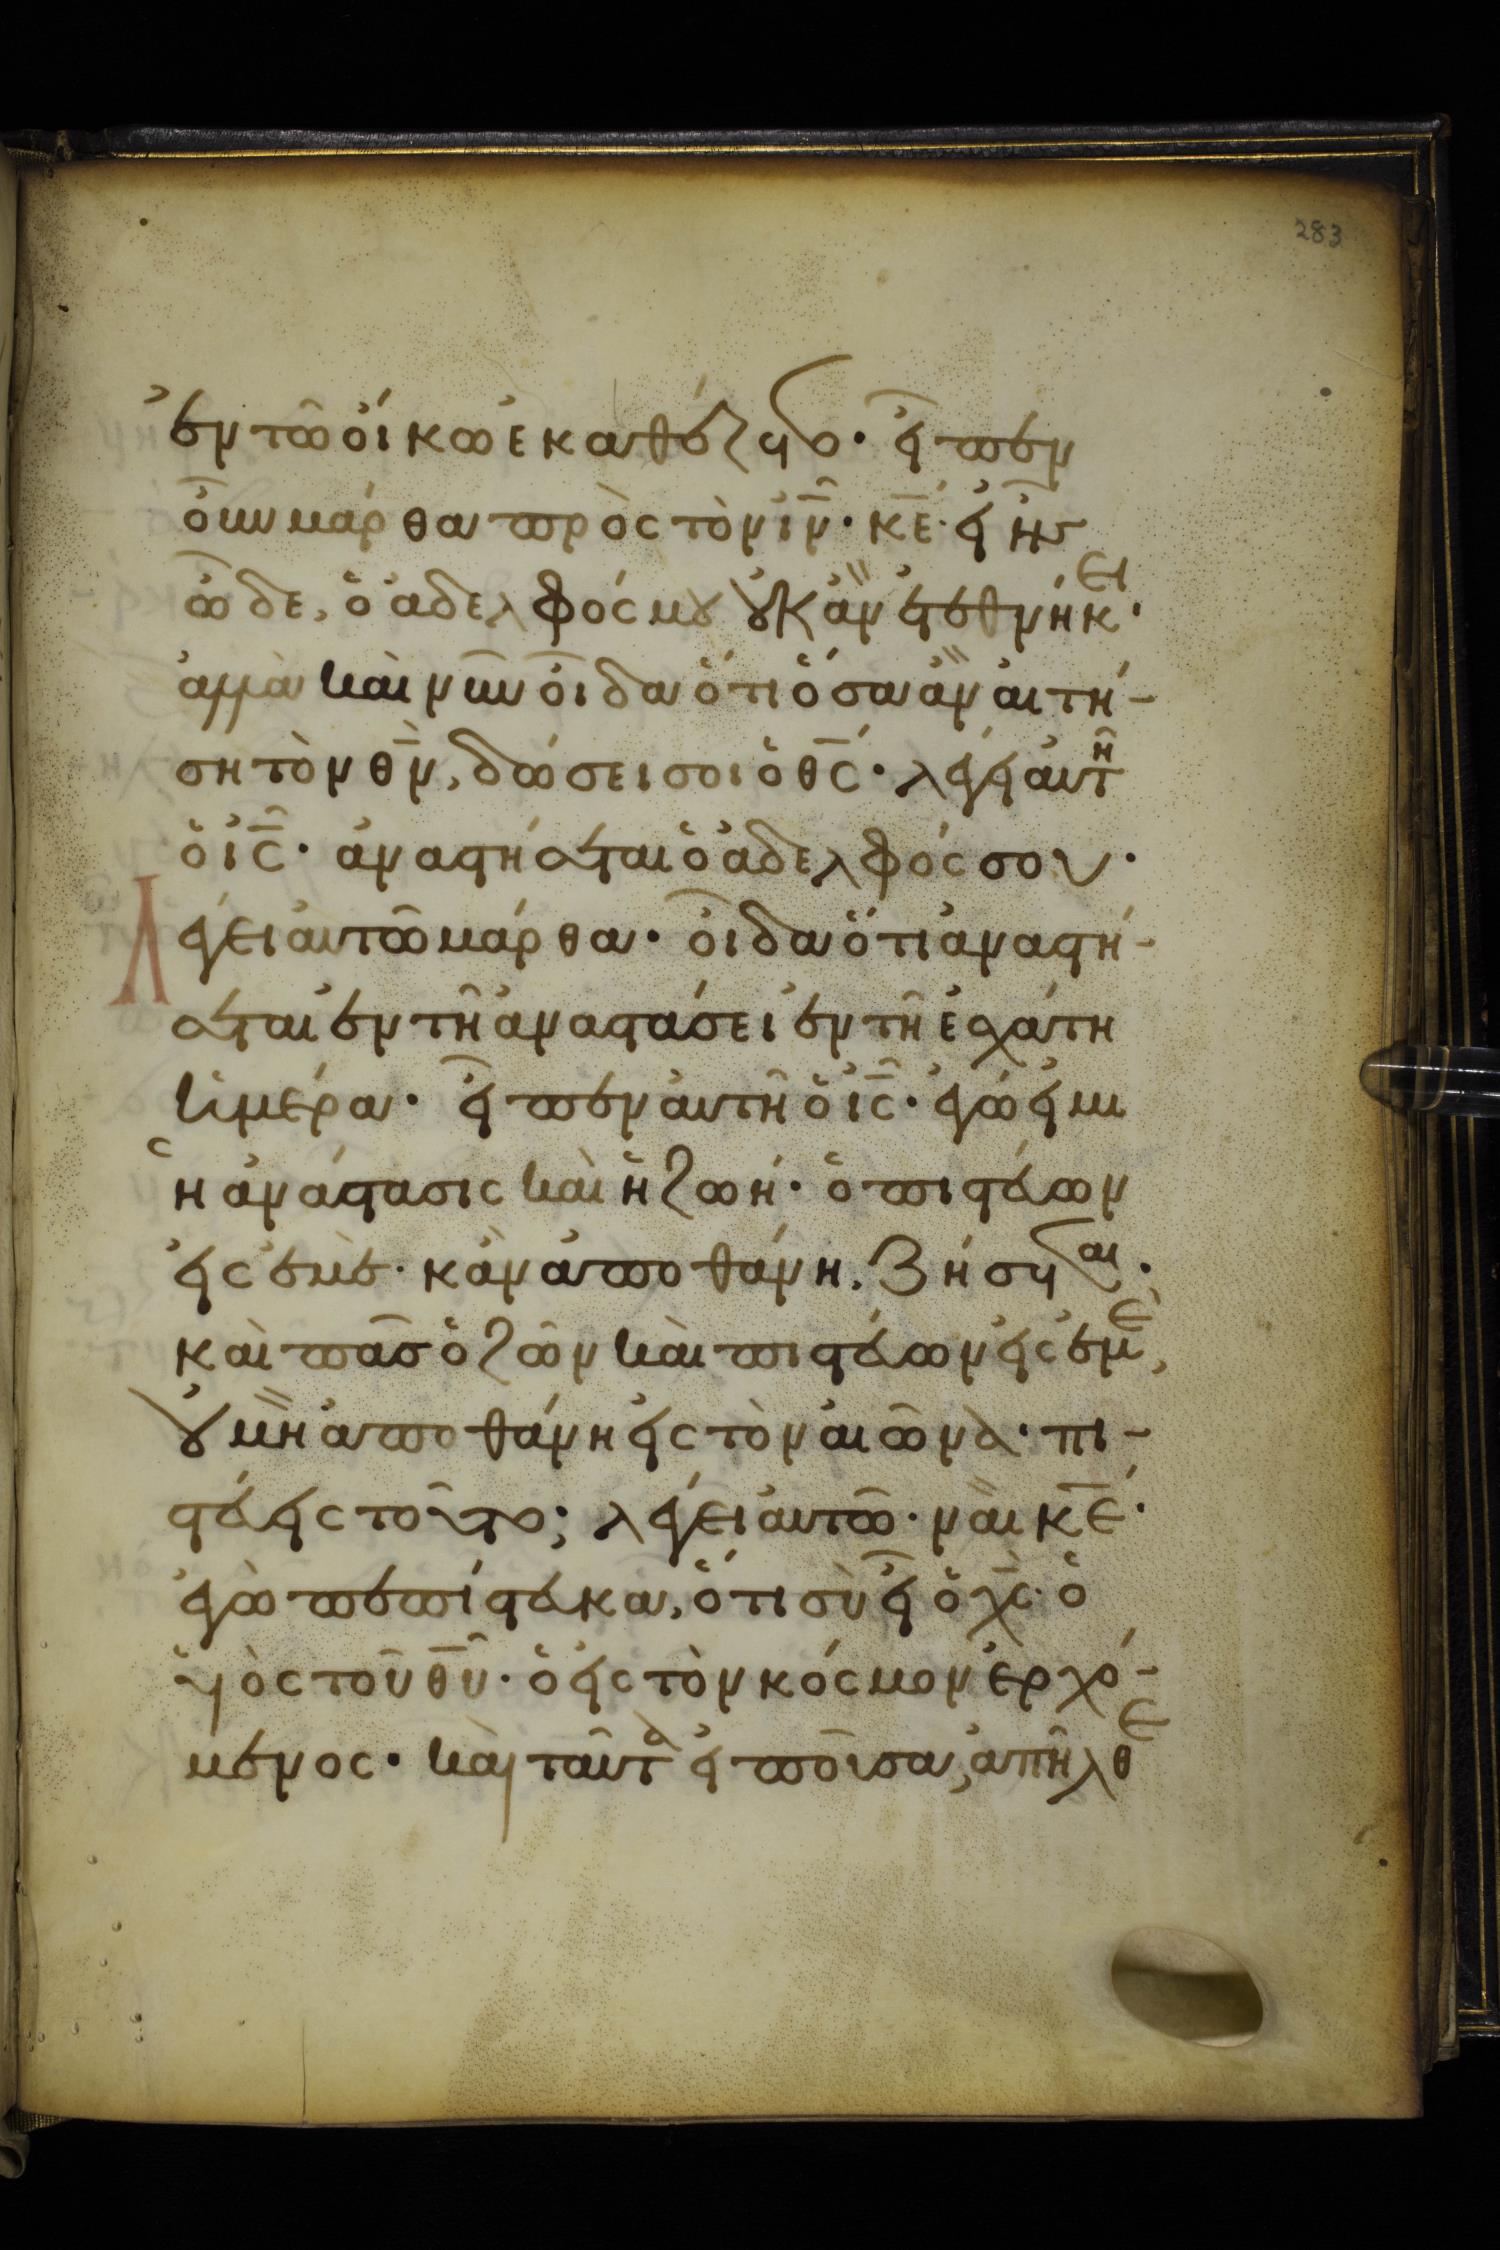 283
ἐν τῶ οἴκω ἐκαθέζετο· εἶπεν
οὖν μάρθα πρὸς τὸν ἰν̅· κε̅· εἰ ἦσ
ὧδε, ὁ ἀδελφός μου οὐκ ἂν ἐτεθνήκει·
ἀλλὰ καὶ νῦν οἶδα ὅτι ὅσα ἂν αἰτή-
ση τὸν θν̅, δώσει σοι ὁ θς̅· λέγει αὐτῆ
ὁ ις̅· ἀναστήσεται ὁ ἀδελφός σου·
Λέγει αὐτῶ μάρθα· οἶδα ὅτι ἀναστή-
σεται ἐν τῆ ἀναστάσει ἐν τῆ ἐσχάτη
ἡμέρα· εἶπεν αὐτῆ ὁ ις̅· ἐγώ εἰμι
ἡ ἀνάστασις καὶ ἡ ζωή· ὁ πιστεύων
εἰς ἐμὲ· κἂν ἀποθάνη, ζήσεται·
καὶ πᾶσ ὁ ζῶν καὶ πιστεύων εἰς ἐμὲ,
οὐ μὴ ἀποθάνη εἰς τὸν αἰῶνα· πι-
στεύεις τοῦτο; λέγει αὐτῶ· ναὶ κε̅·
ἐγὼ πεπίστευκα, ὅτι σὺ εἶ ὁ χς̅· ὁ
υἱὸς τοῦ θυ̅· ὁ εἰς τὸν κόσμον ἐρχό-
μενος· καὶ ταῦτα εἰποῦσα, ἀπῆλθε